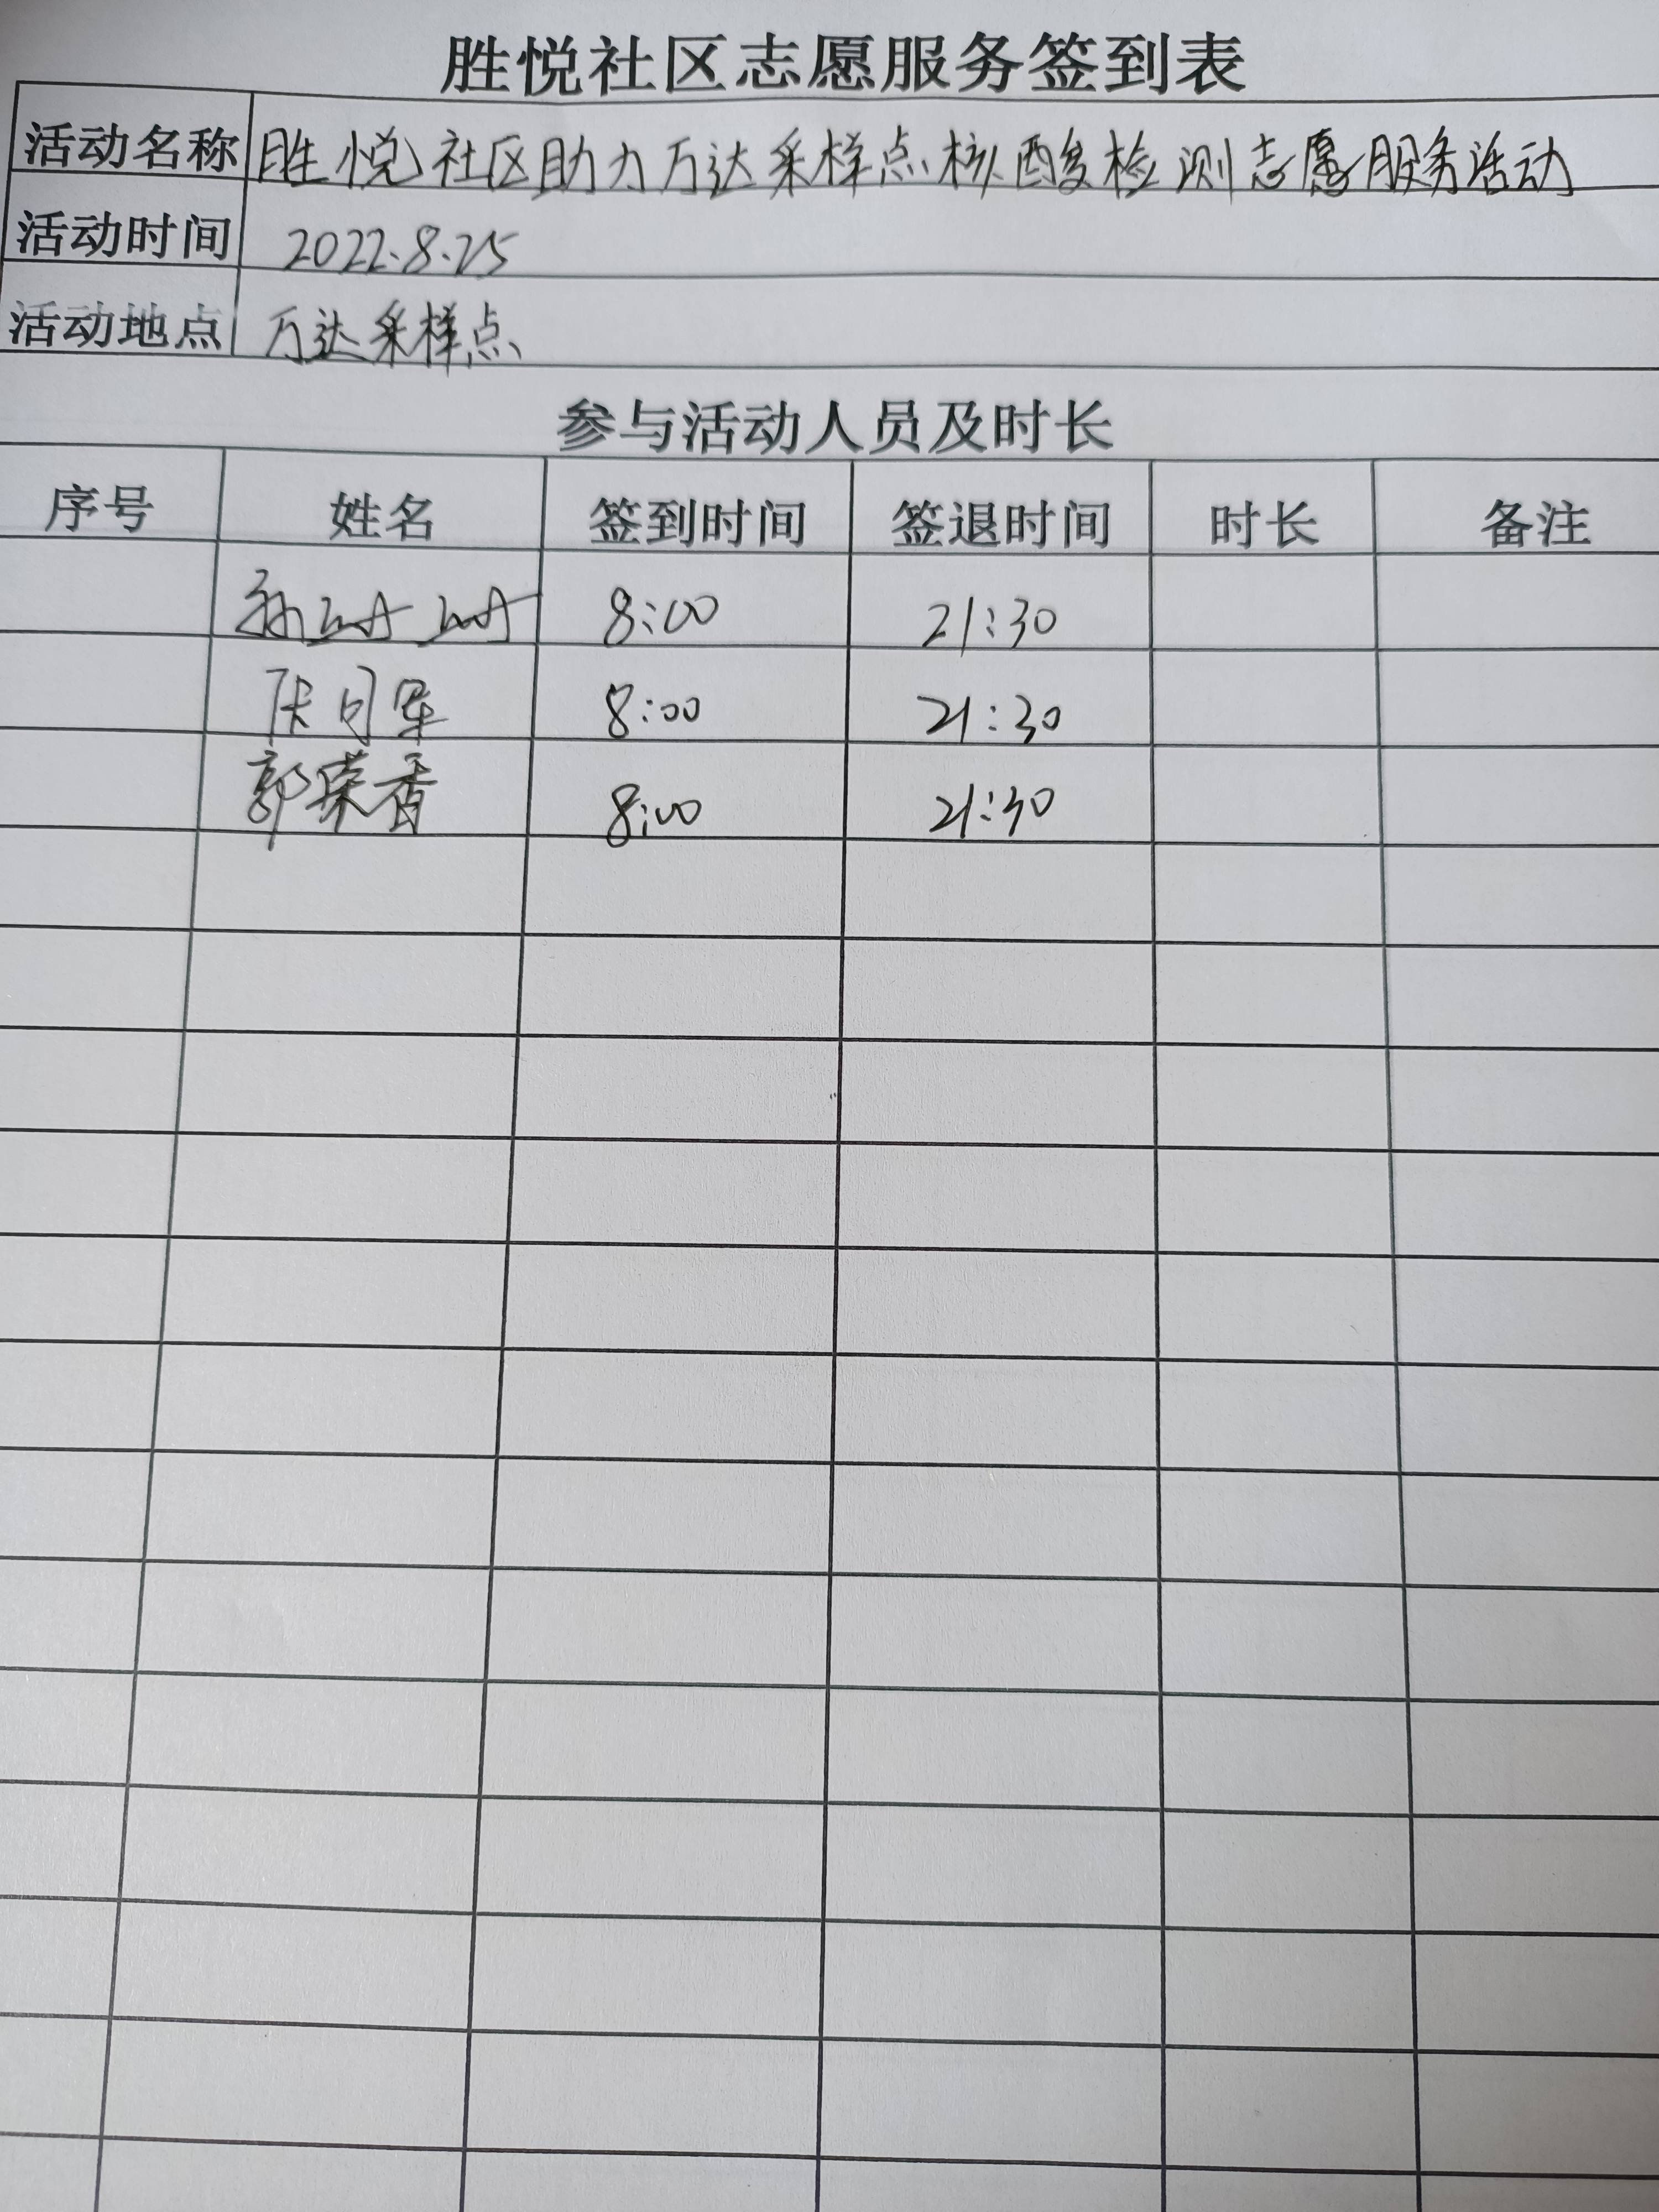 胜悦社区志愿服务签到表
活动名称 胜悦社区助力万达采样点核酸检测志愿服务活动
活动时间 2022.8.25
活动地点 万达采样点
参与活动人员及时长
序号 姓名 签到时间 签退时间 时长 备注
8:00 21:30
8:00 21:30
郭荣香 8:00 21:30